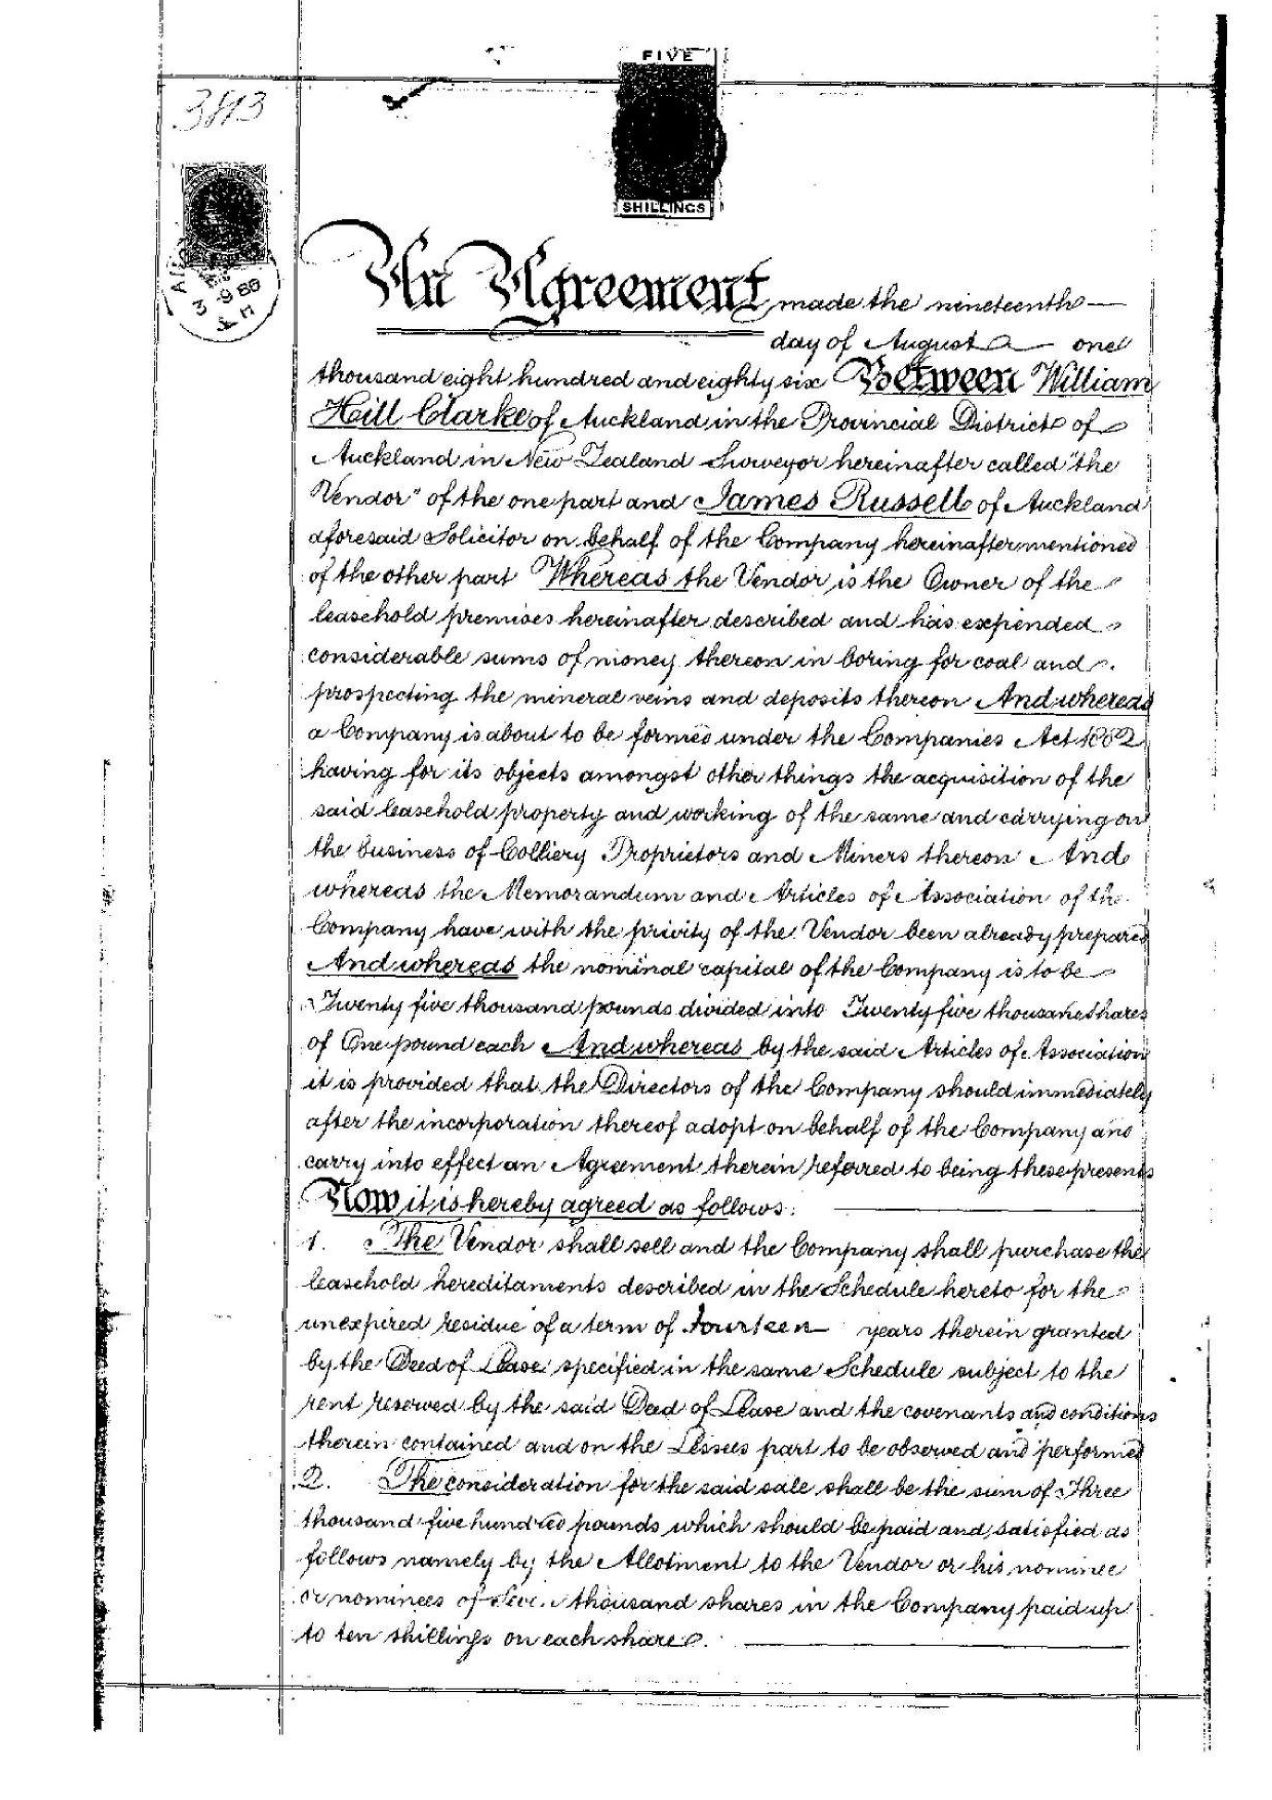 FIVE
3813
SHILLINGS
3 9 86
An Agreement made the nineteenth
day of August one
thousand eight hundred and eighty six Between William
Hill Clarke of Auckland in the Provincial District of
Auckland in New Zealand Surveyor hereinafter called "the
Vendor" of the one part and James Russell of Auckland
aforesaid Solicitor on behalf of the Company hereinafter mentioned
of the other part Whereas the Vendor is the Owner of the
leasehold premises hereinafter described and has expended
considerable sums of money thereon in boring for coal and
prospecting the mineral veins and deposits thereon And whereas
a Company is about to be formed under the Companies Act 1882
having for its objects amongst other things the acquisition of the
said leasehold property and working of the same and carrying on
the business of Colliery Proprietors and Miners thereon And
whereas the Memorandum and Articles of Association of the
Company have with the privity of the Vendor been already prepared
And whereas the nominal capital of the Company is to be
Twenty five thousand pounds divided into Twenty five thousand shares
of One pound each And whereas by the said Articles of Association
it is provided that the Directors of the Company should immediately
after the incorporation thereof adopt on behalf of the Company and
carry into effect an Agreement therein referred to being these presents
Now it is hereby agreed as follows:
1. The Vendor shall sell and the Company shall purchase the
leasehold hereditaments described in the Schedule hereto for the
unexpired residue of a term of fourteen years therein granted
by the Deed of Lease specified in the same Schedule subject to the
rent reserved by the said Deed of Lease and the covenants and conditions
therein contained and on the Lessees part to be observed and performed
2. The consideration for the said sale shall be the sum of Three
thousand five hundred pounds which should be paid and satisfied as
follows namely by the Allotment to the Vendor or his nominee
or nominees of thousand shares in the Company paid up
to ten shillings on each share.